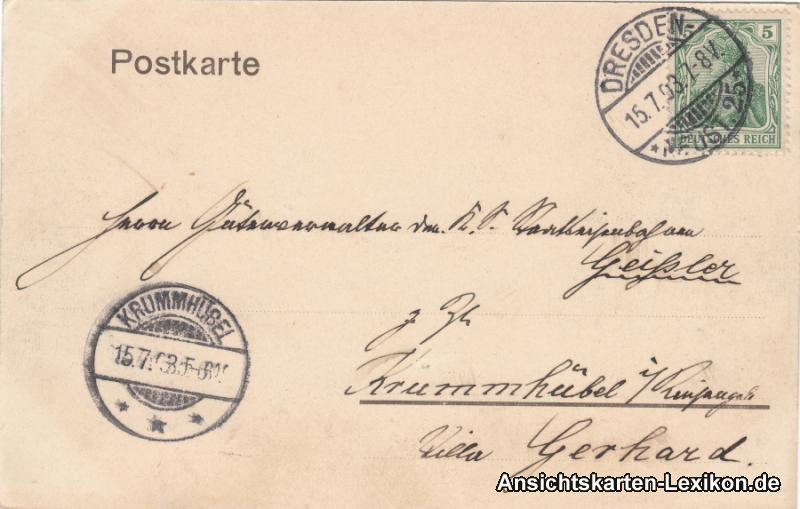 Postkarte
DRESDEN-
15.7.03.7-8V.
NEUST. 25
5
DEUTSCHES REICH
Herrn Güterverwalter der K. S. Staatseisenbahnen
Geißler
z. Zt.
Krummhübel i/Riesengeb.
Villa Gerhard.
KRUMMHÜBEL
15.7.03.5-6N.
Ansichtskarten-Lexikon.de